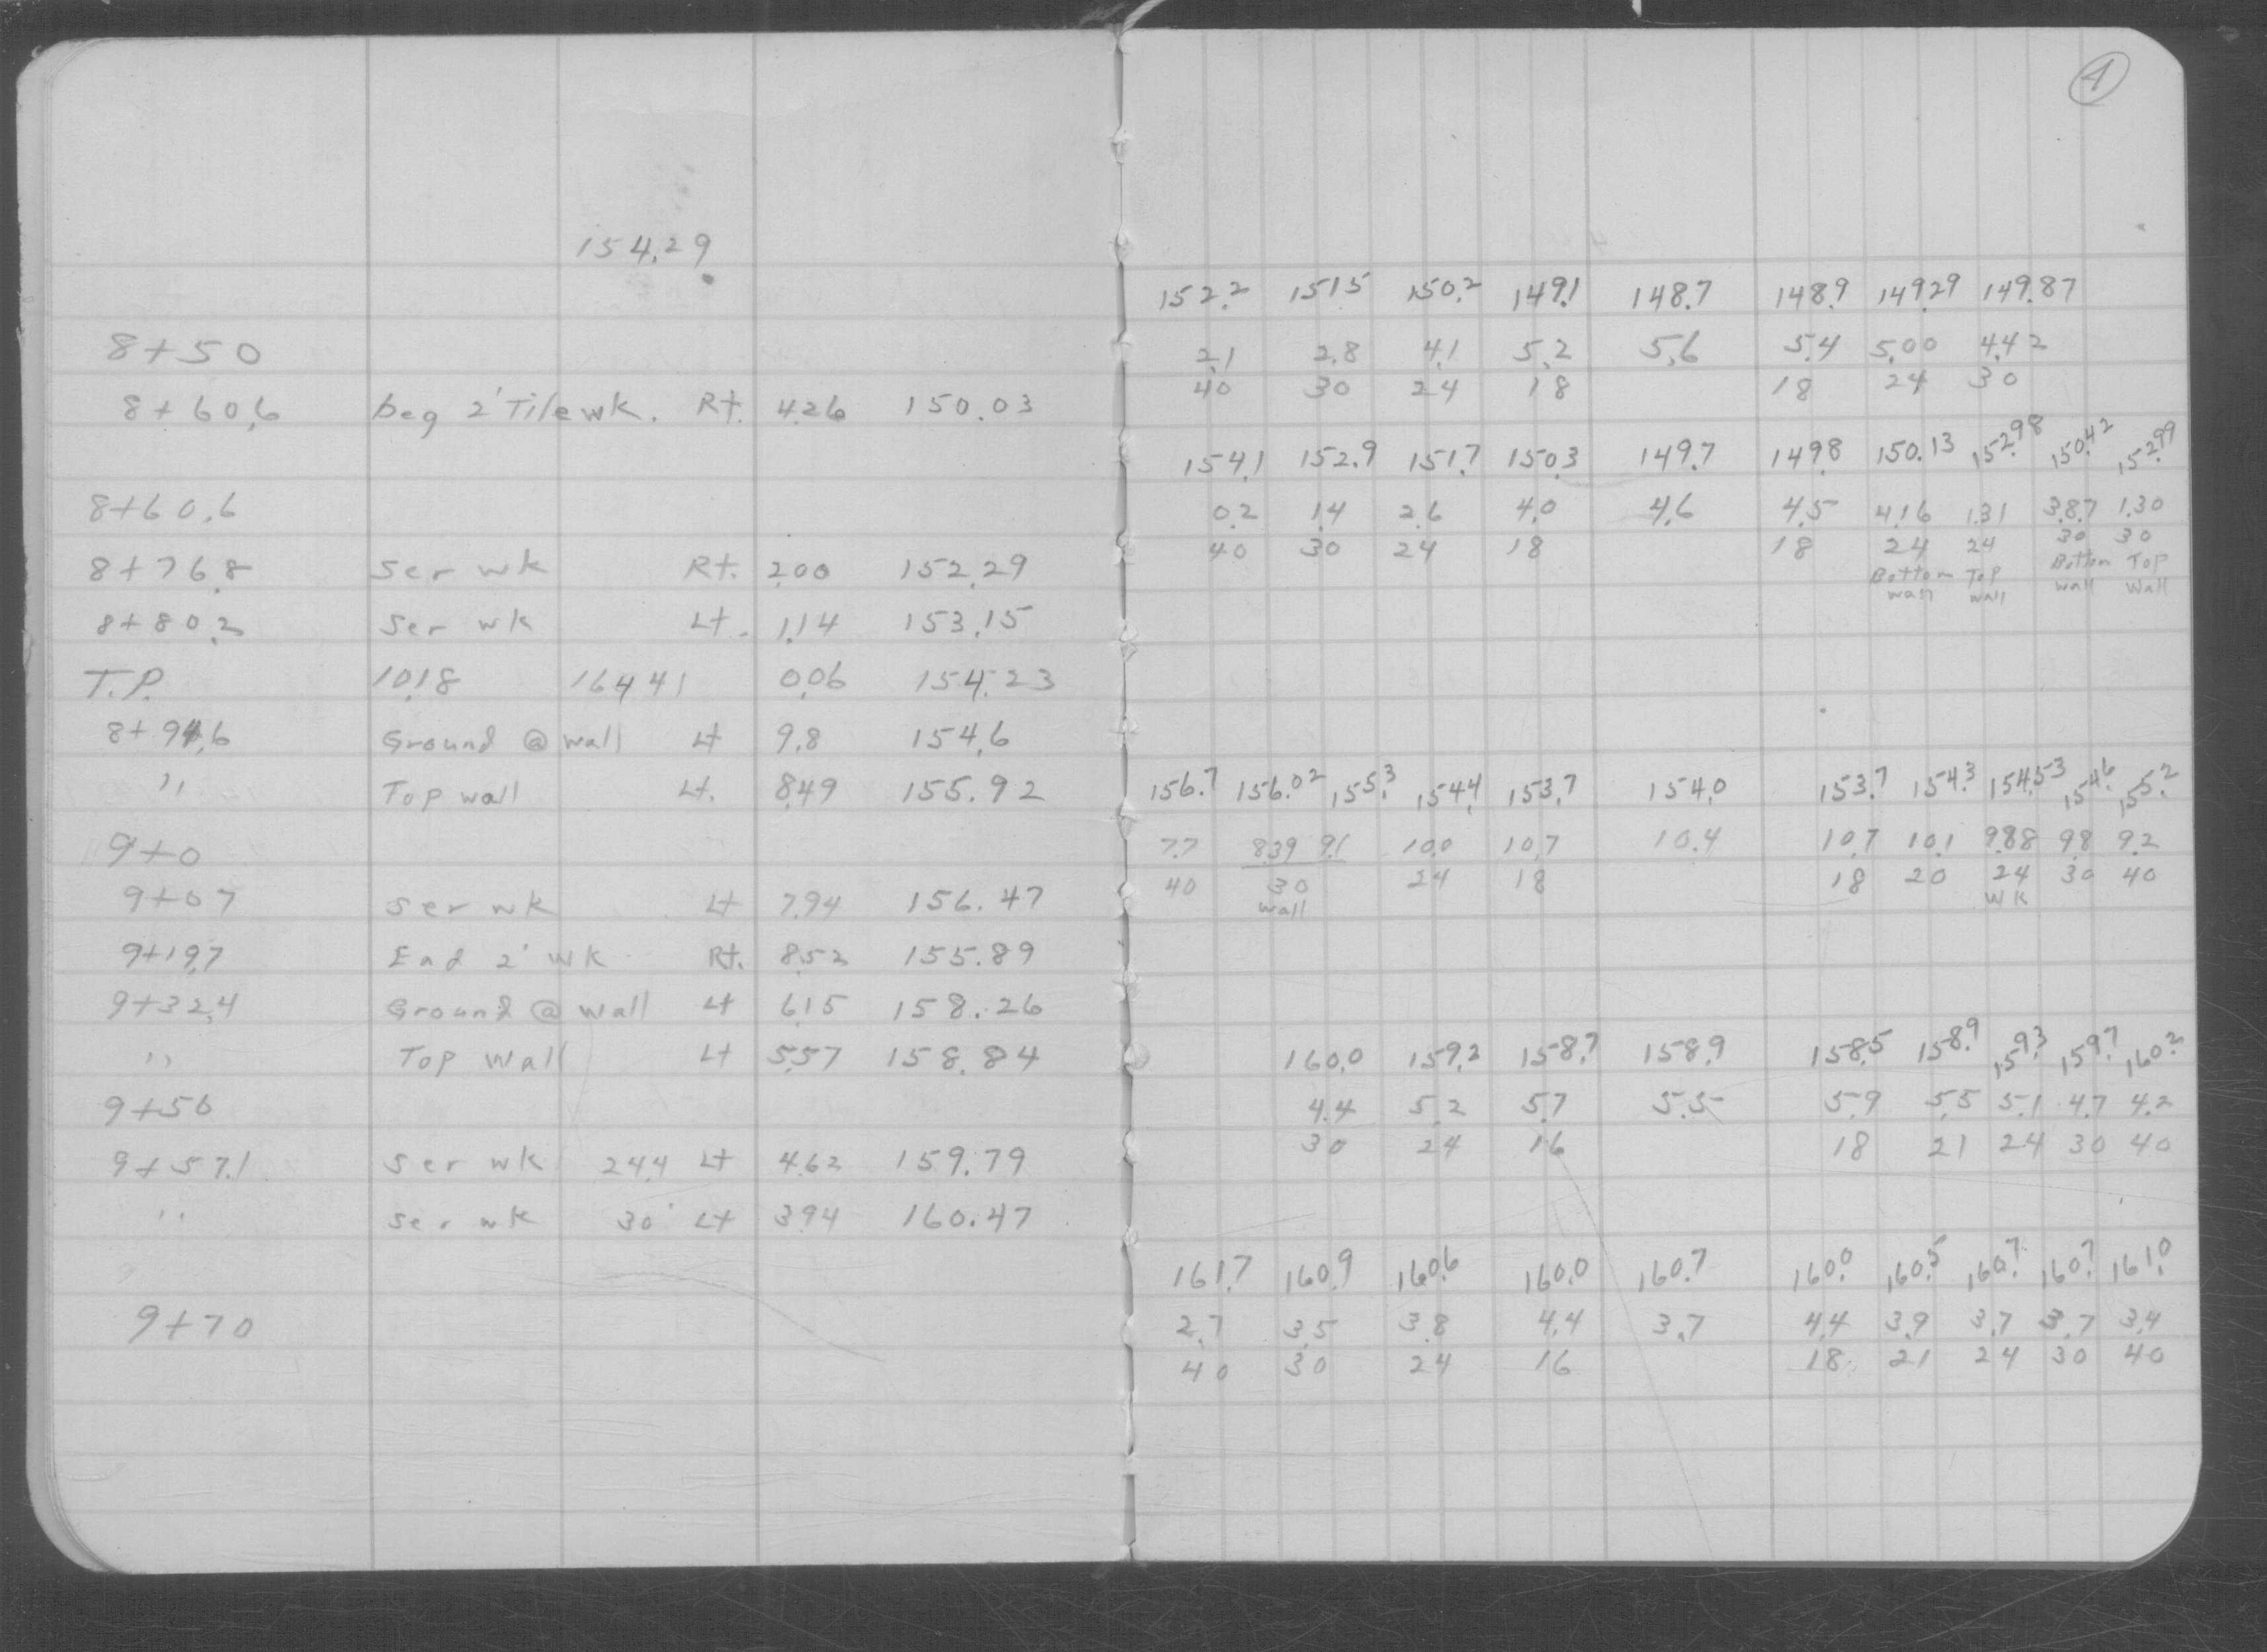 154.29
8+50
8+60.6 beg 2' Tile wk. Rt. 4.26 150.03
8+60.6
8+76.8 Ser wk Rt. 2.00 152.29
8+80.2 Ser wk Lt. 1.14 153.15
T.P. 10.18 164.41 0.06 154.23
8+94.6 Ground @ wall Lt 9.8 154.6
" Top wall Lt. 8.49 155.92
9+0
9+07 Ser wk Lt 7.94 156.47
9+19.7 End 2' wk Rt. 8.52 155.89
9+32.4 Ground @ wall Lt 6.15 158.26
" Top Wall Lt 5.57 158.84
9+50
9+57.1 Ser wk 24.4 Lt 4.62 159.79
" Ser wk 30' Lt 3.94 160.47
9+70
1
152.2 151.5 150.2 149.1 148.7 148.9 149.29 149.87
2.1 2.8 4.1 5.2 5.6 5.4 5.00 4.42
40 30 24 18 18 24 30
154.1 152.9 151.7 150.3 149.7 149.8 150.13 152.98 150.42 152.99
0.2 1.4 2.6 4.0 4.6 4.5 4.16 1.31 3.87 1.30
40 30 24 18 18 24 24 30 30
Bottom Top Bottom Top
wall wall wall Wall
156.7 156.02 155.3 154.4 153.7 154.0 153.7 154.3 154.53 154.6 155.2
7.7 8.39 9.1 10.0 10.7 10.4 10.7 10.1 9.88 9.8 9.2
40 30 24 18 18 20 24 30 40
wall WK
160.0 159.2 158.7 158.9 158.5 158.9 159.3 159.7 160.2
4.4 5.2 5.7 5.5 5.9 5.5 5.1 4.7 4.2
30 24 16 18 21 24 30 40
161.7 160.9 160.6 160.0 160.7 160.0 160.5 160.7 160.7 161.0
2.7 3.5 3.8 4.4 3.7 4.4 3.9 3.7 3.7 3.4
40 30 24 16 18 21 24 30 40